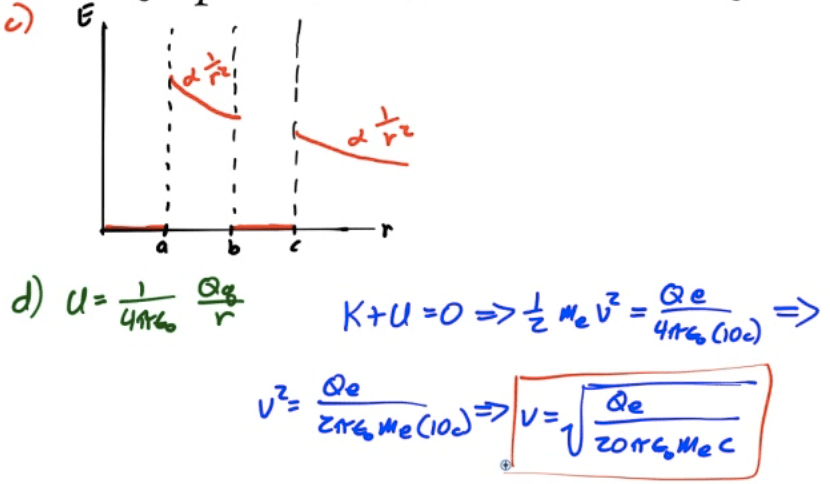 c) E
α 1/r²
α 1/r²
a b c r
d) U = 1/(4πε₀) Qq/r
K+U=0 => 1/2 mₑv² = Qe/(4πε₀(10c)) =>
v² = Qe/(2πε₀mₑ(10c)) => v = √(Qe/(20πε₀mₑc))